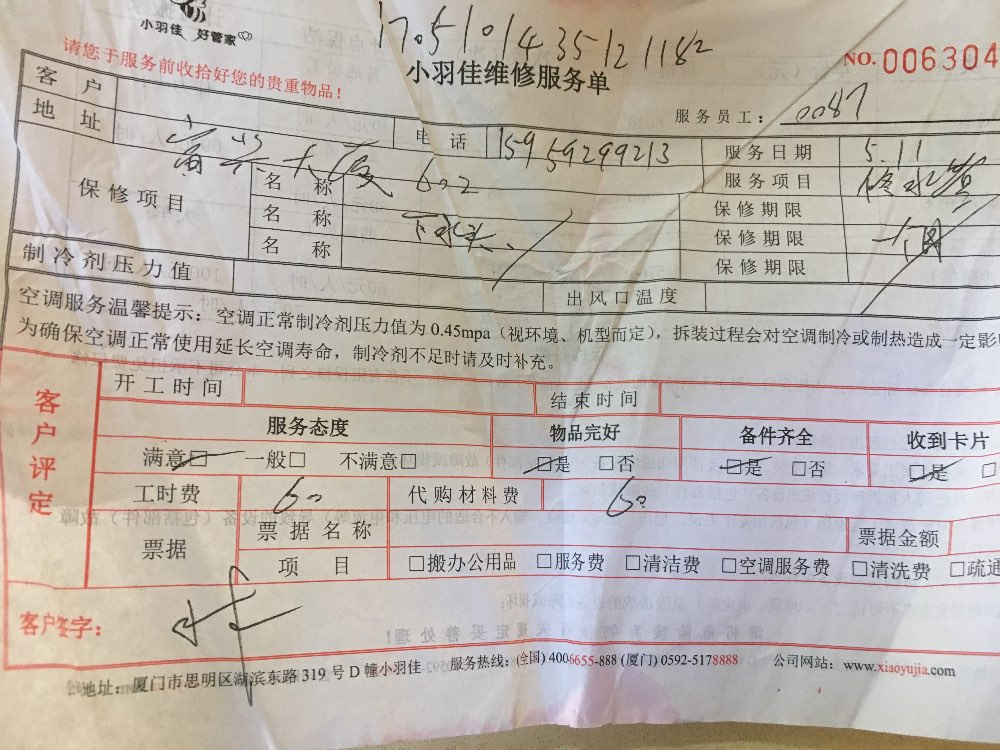 小羽佳 好管家
17.5101435121182
小羽佳维修服务单
NO.006304
请您于服务前收拾好您的贵重物品！
服务员工： 0087
客户
地址 富兴大厦 602
电话 15959299213
服务日期 5.11
保修项目
名称
服务项目 修水管
名称 下水
保修期限
名称
保修期限 一个月
保修期限
制冷剂压力值
出风口温度
空调服务温馨提示：空调正常制冷剂压力值为0.45mpa（视环境、机型而定），拆装过程会对空调制冷或制热造成一定影
为确保空调正常使用延长空调寿命，制冷剂不足时请及时补充。
客户评定
开工时间
结束时间
服务态度 物品完好 备件齐全 收到卡片
满意□ 一般□ 不满意□ □是 □否 □是 □否 □是 □
工时费 60 代购材料费 60
票据
票据名称
票据金额
项目 □搬办公用品 □服务费 □清洁费 □空调服务费 □清洗费 □疏通
客户签字：
公司地址：厦门市思明区湖滨东路319号D幢小羽佳 服务热线：(全国) 4006655-888 (厦门) 0592-5178888 公司网站：www.xiaoyujia.com